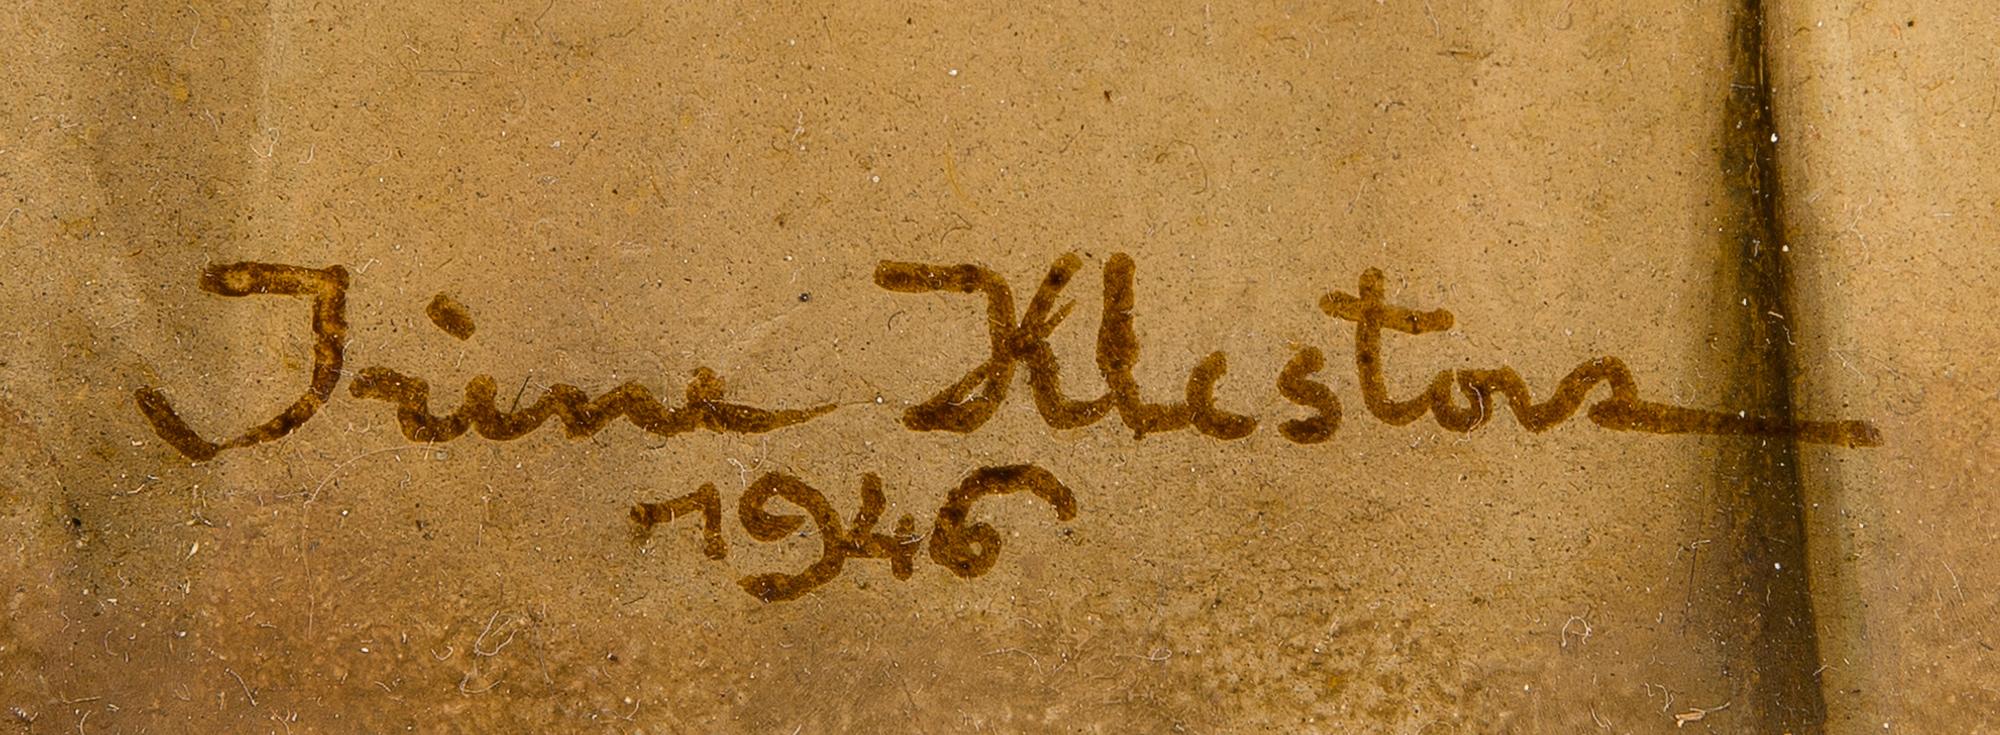 Irène Klestova
1946